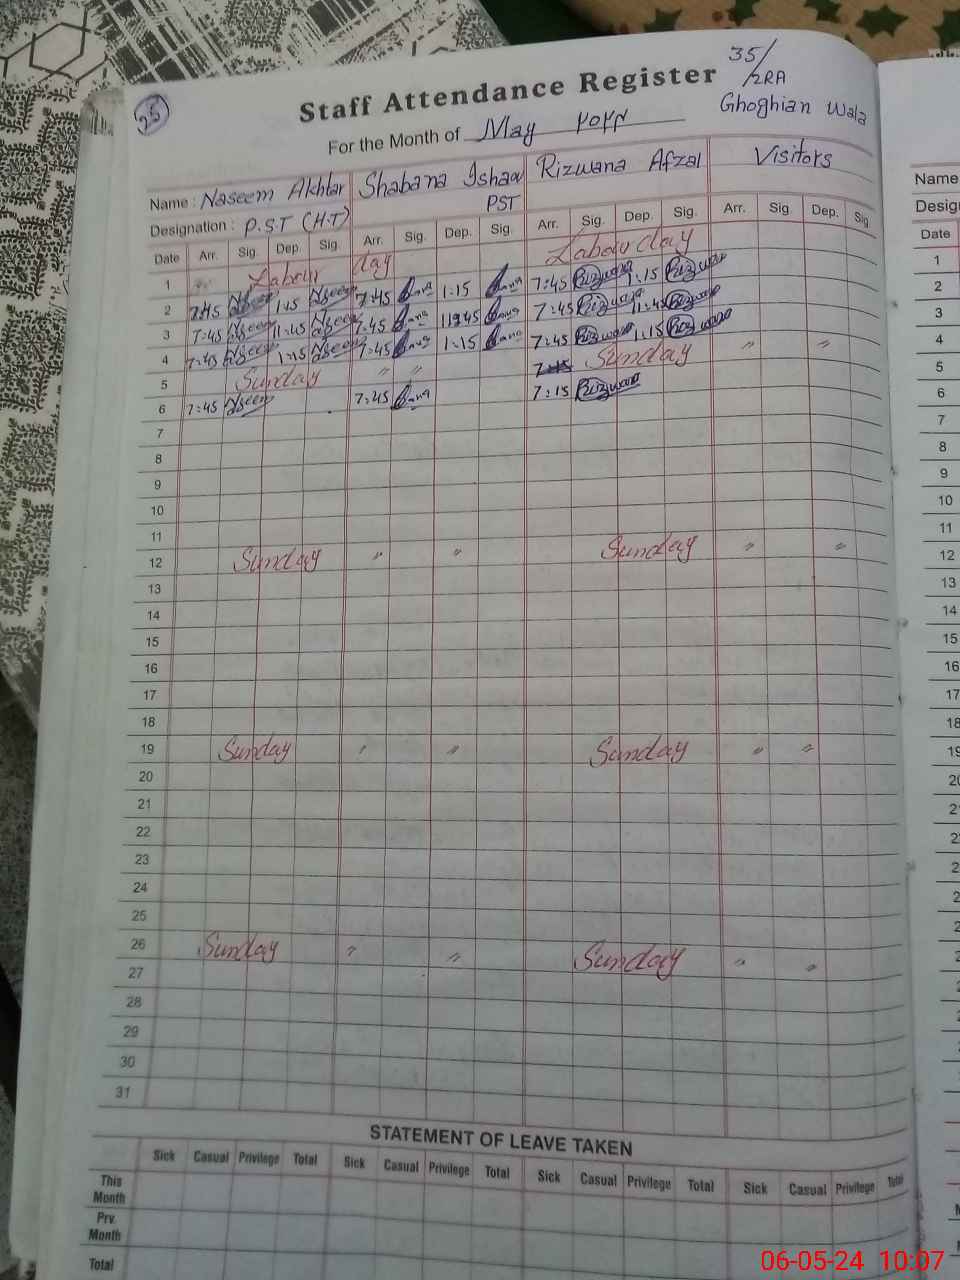 25
35/2RA
Staff Attendance Register
Ghoghian Wala
For the Month of May ۲۰۲۴
Name : Naseem Akhtar Shabana Ishaq Rizwana Afzal Visitors
Designation : P.S.T (H.T) PST
Date Arr. Sig. Dep. Sig. Arr. Sig. Dep. Sig. Arr. Sig. Dep. Sig. Arr. Sig. Dep. Sig.
1 Labour day Labour day
2 7:45 Naseem 1:15 Naseem 7:45 1:15 7:45 Rizwana 1:15 Rizwana
3 7:45 Naseem 11:45 Naseem 7:45 11:45 7:45 Rizwana 11:45 Rizwana
4 7:45 Naseem 1:15 Naseem 7:45 1:15 7:45 Rizwana 1:15 Rizwana
5 Sunday " " Sunday " "
6 7:45 Naseem 7:45 7:15 Rizwana
7
8
9
10
11
12 Sunday " " Sunday " "
13
14
15
16
17
18
19 Sunday " " Sunday " "
20
21
22
23
24
25
26 Sunday " " Sunday " "
27
28
29
30
31
STATEMENT OF LEAVE TAKEN
Sick Casual Privilege Total Sick Casual Privilege Total Sick Casual Privilege Total Sick Casual Privilege Total
This Month
Prv. Month
Total
Name
Desig
Date
1
2
3
4
5
6
7
8
9
10
11
12
13
14
15
16
17
18
19
06-05-24 10:07